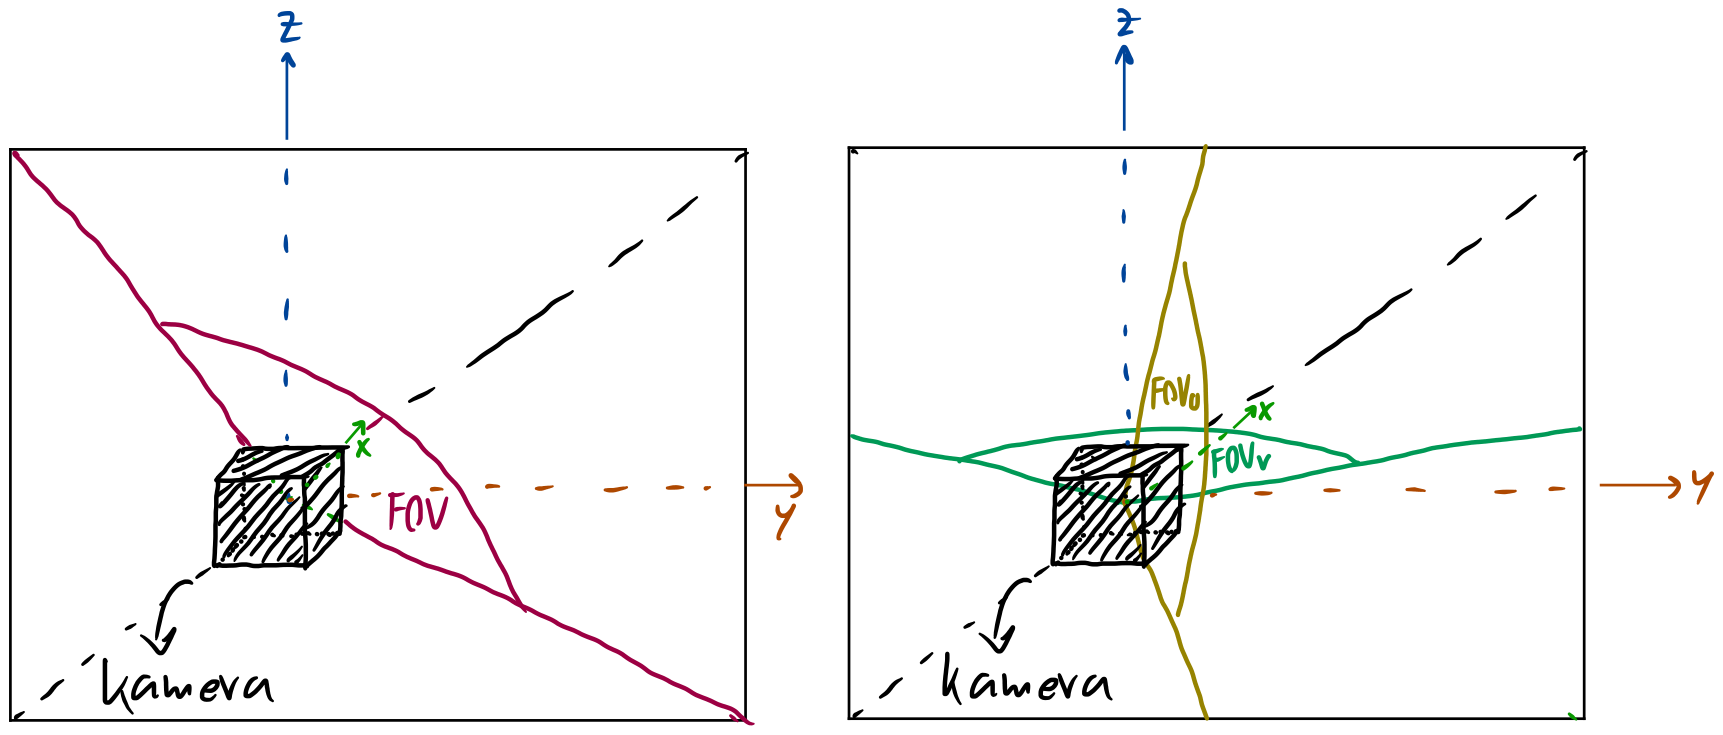 z
x
FOV
y
kamera
z
FOVu
x
FOVv
y
kamera